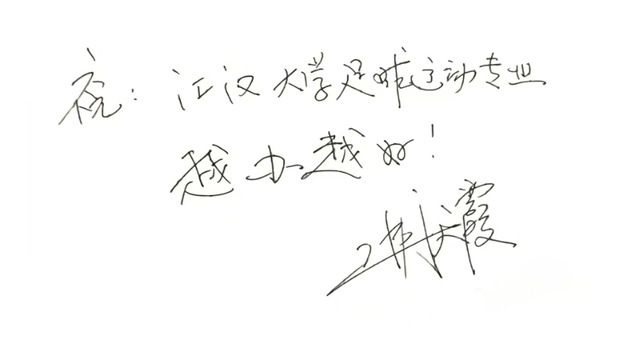 祝：江汉大学足球运动专业
越办越好！
霞